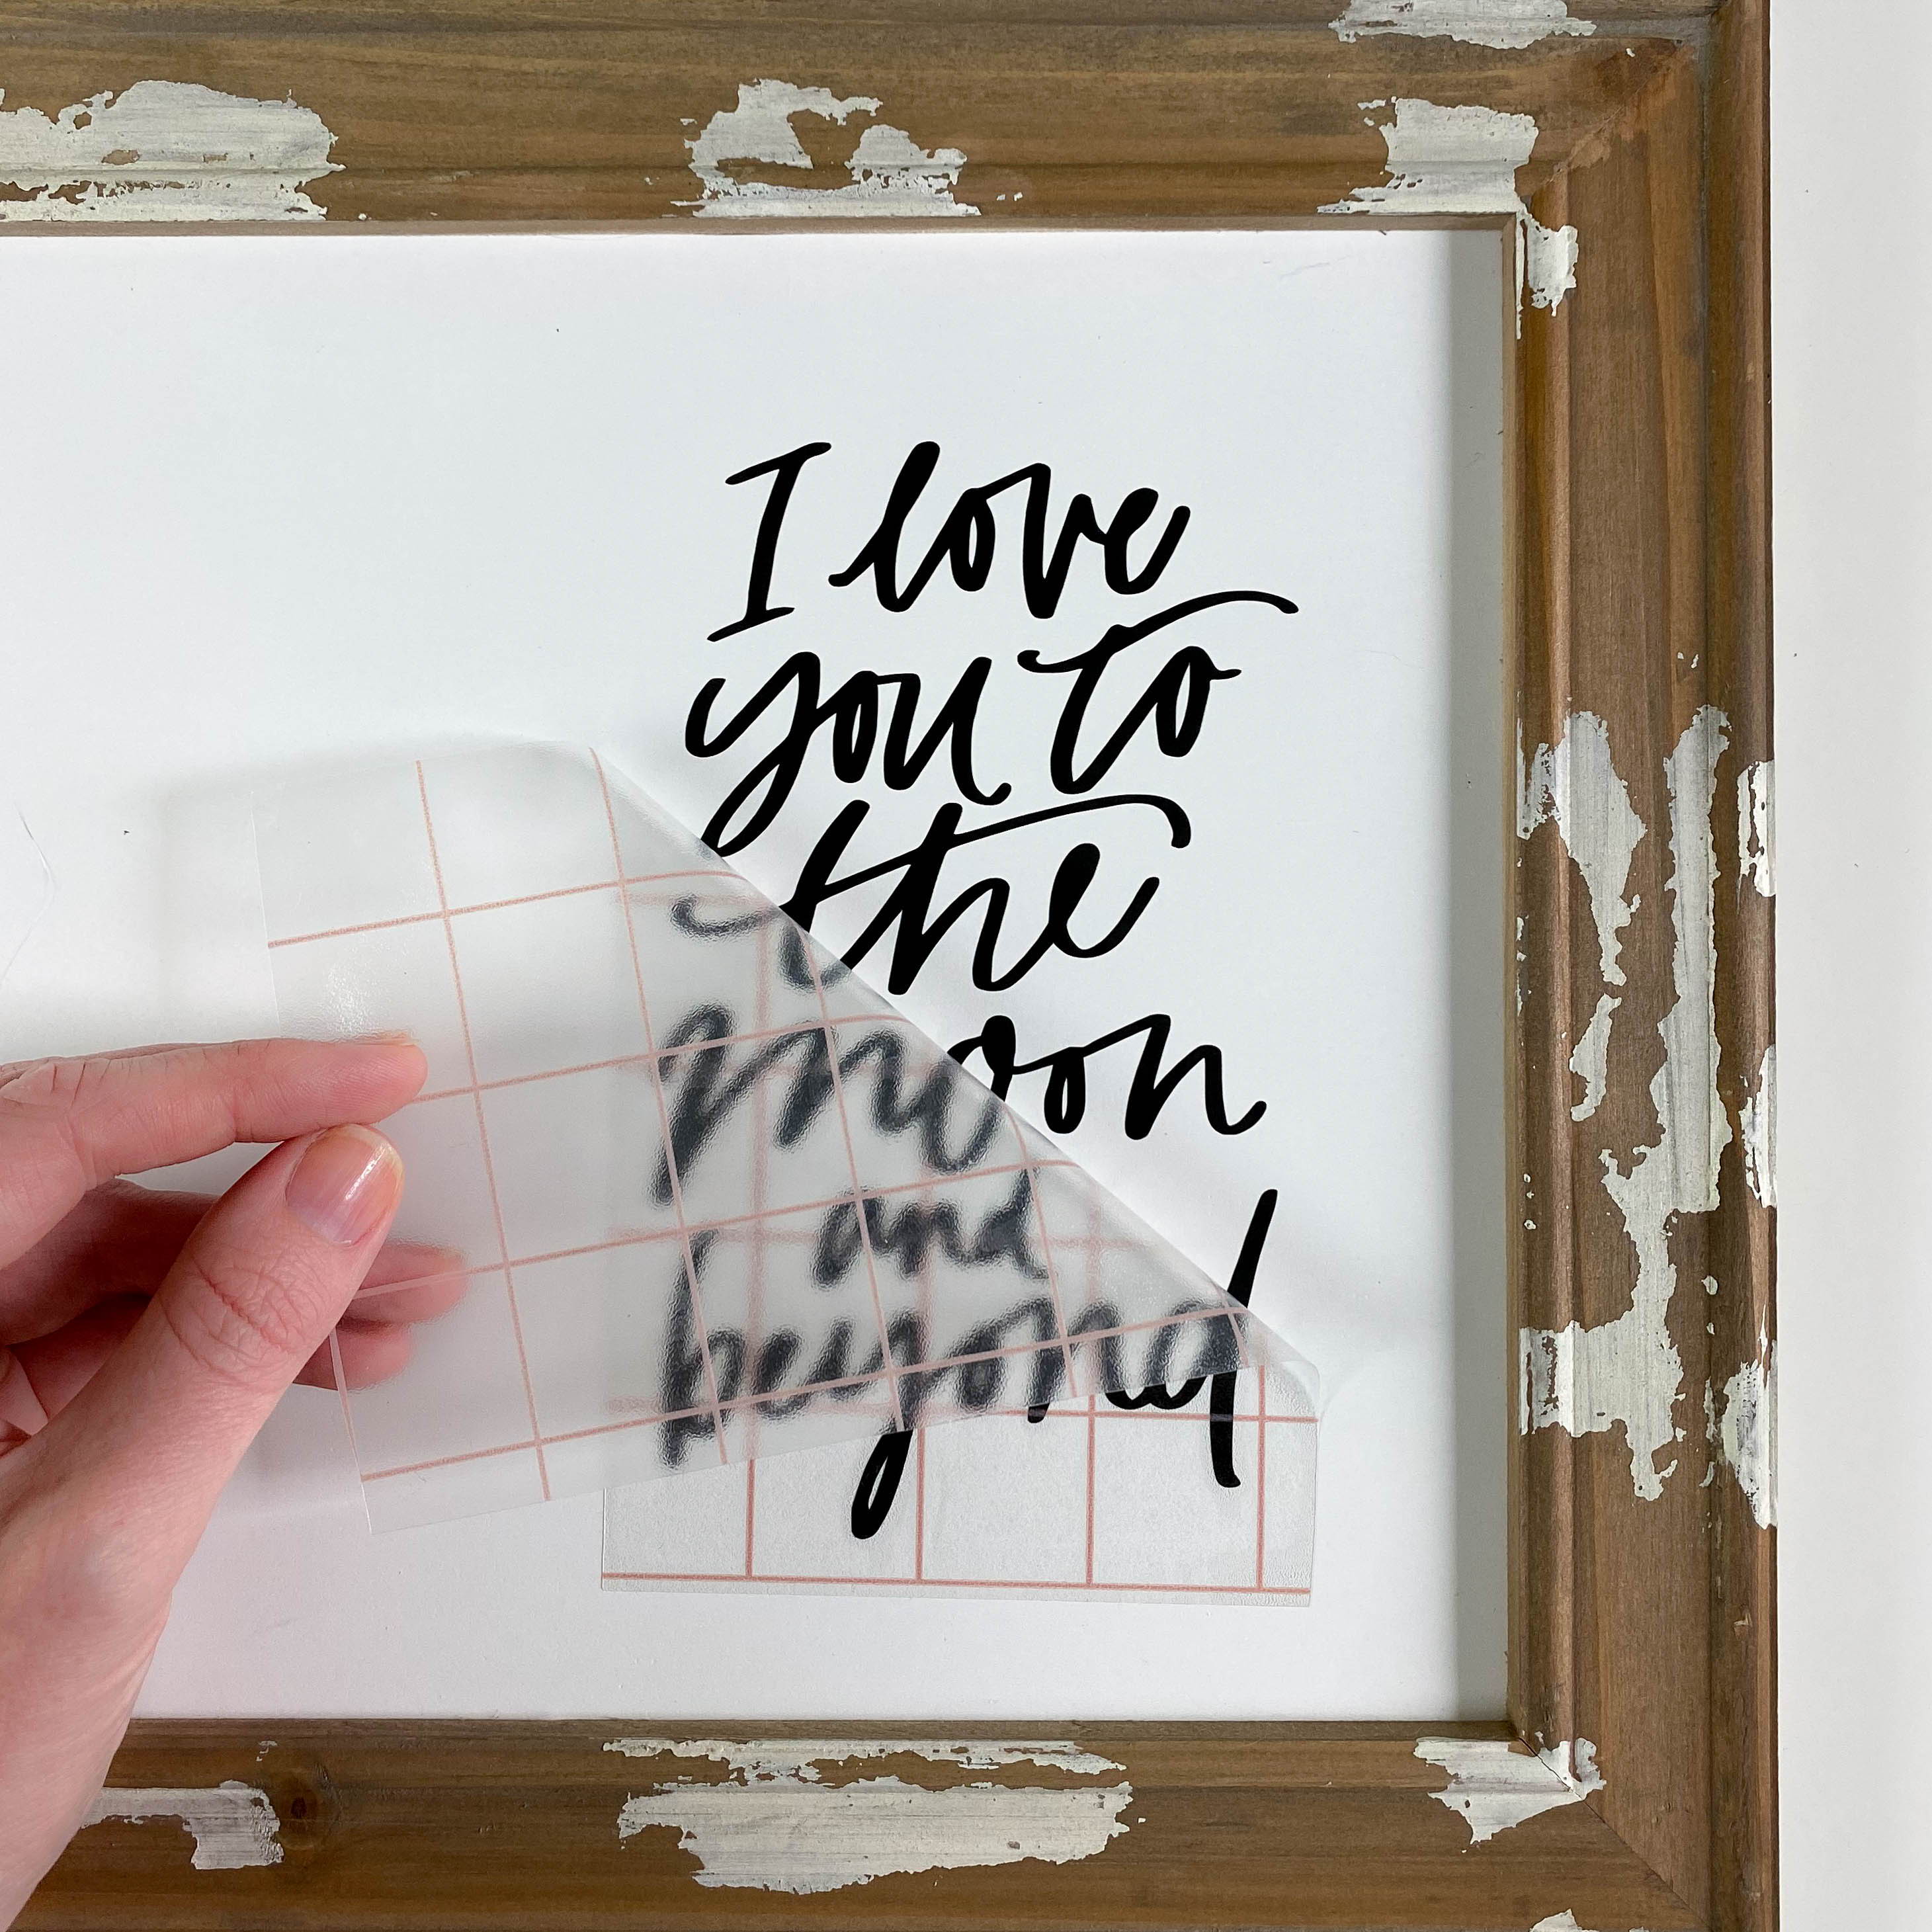 I love
you to
the
moon
and
beyond